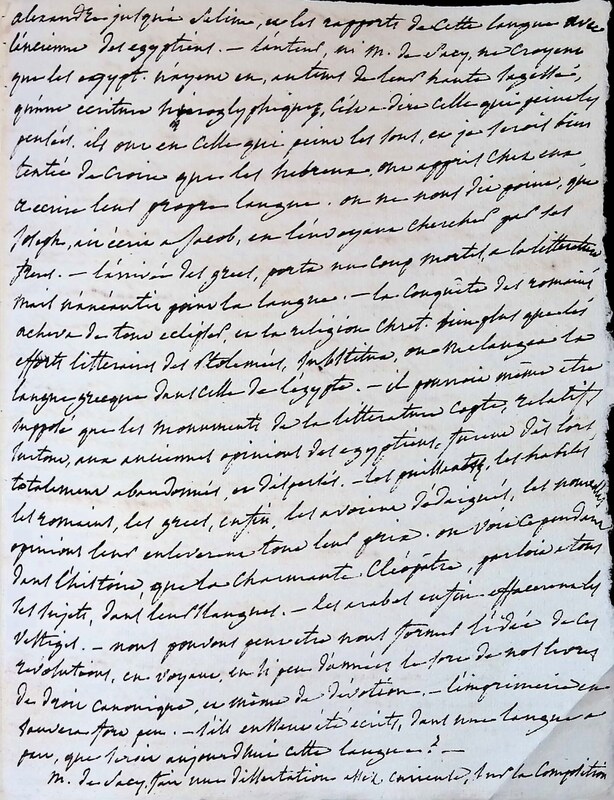 alexandre jusqu'à Selim, et les rapports de cette langue avec
l'ancienne des egyptiens. — l'auteur, ni M. de Sacy, ne croyent
que les egypt. n'ayent eu, autems de leur haute sagesse,
qu'une ecriture hieroglyphique, c'est a dire celle qui peint les
pensées. ils ont eu celle qui peint les sons, et je serois bien
tentée de croire que les hebreux, ont appris chez eux
a ecrire leur propre langue. on ne nous dit point, que
Joseph, ait écrit a Jacob, en l'envoyant chercher par ses
freres. — l'arrivée des grecs, porta un coup mortel, a la litterature
mais n'aneantit point la langue. — la conquête des romains
acheva de tout eclipser, et la religion chret. bien plus que les
efforts litteraires des Ptolemées, substitua, ou melangea la
langue grecque dans celle de l'egypte. — il pourroit même etre
supposé que les monuments de la litterature copte, relatifs
surtout, aux anciennes opinions des egyptiens, furent dès lors
totalement abandonnés, et dispersés. — les puissants, les habiles
les romains, les grecs, enfin, les avoient dédaignés, les nouvelles
opinions leur enleverent tout leur prix. on voit cependant
dans l'histoire, que la charmante Cléopâtre, parloit a tous
ses sujets, dans leurs langues. — les arabes enfin effacerent les
vestiges. — nous pouvons peutetre nous former l'idée de ces
revolutions, en voyant, en si peu d'années le sort de nos livres
de droit canonique, et même de dévotion. — l'imprimerie en
sauvera fort peu. — s'ils eussent été écrits, dans une langue a
part, que seroit aujourd'hui cette langue ? —
M. de Sacy, fait une dissertation assez curieuse, sur la composition